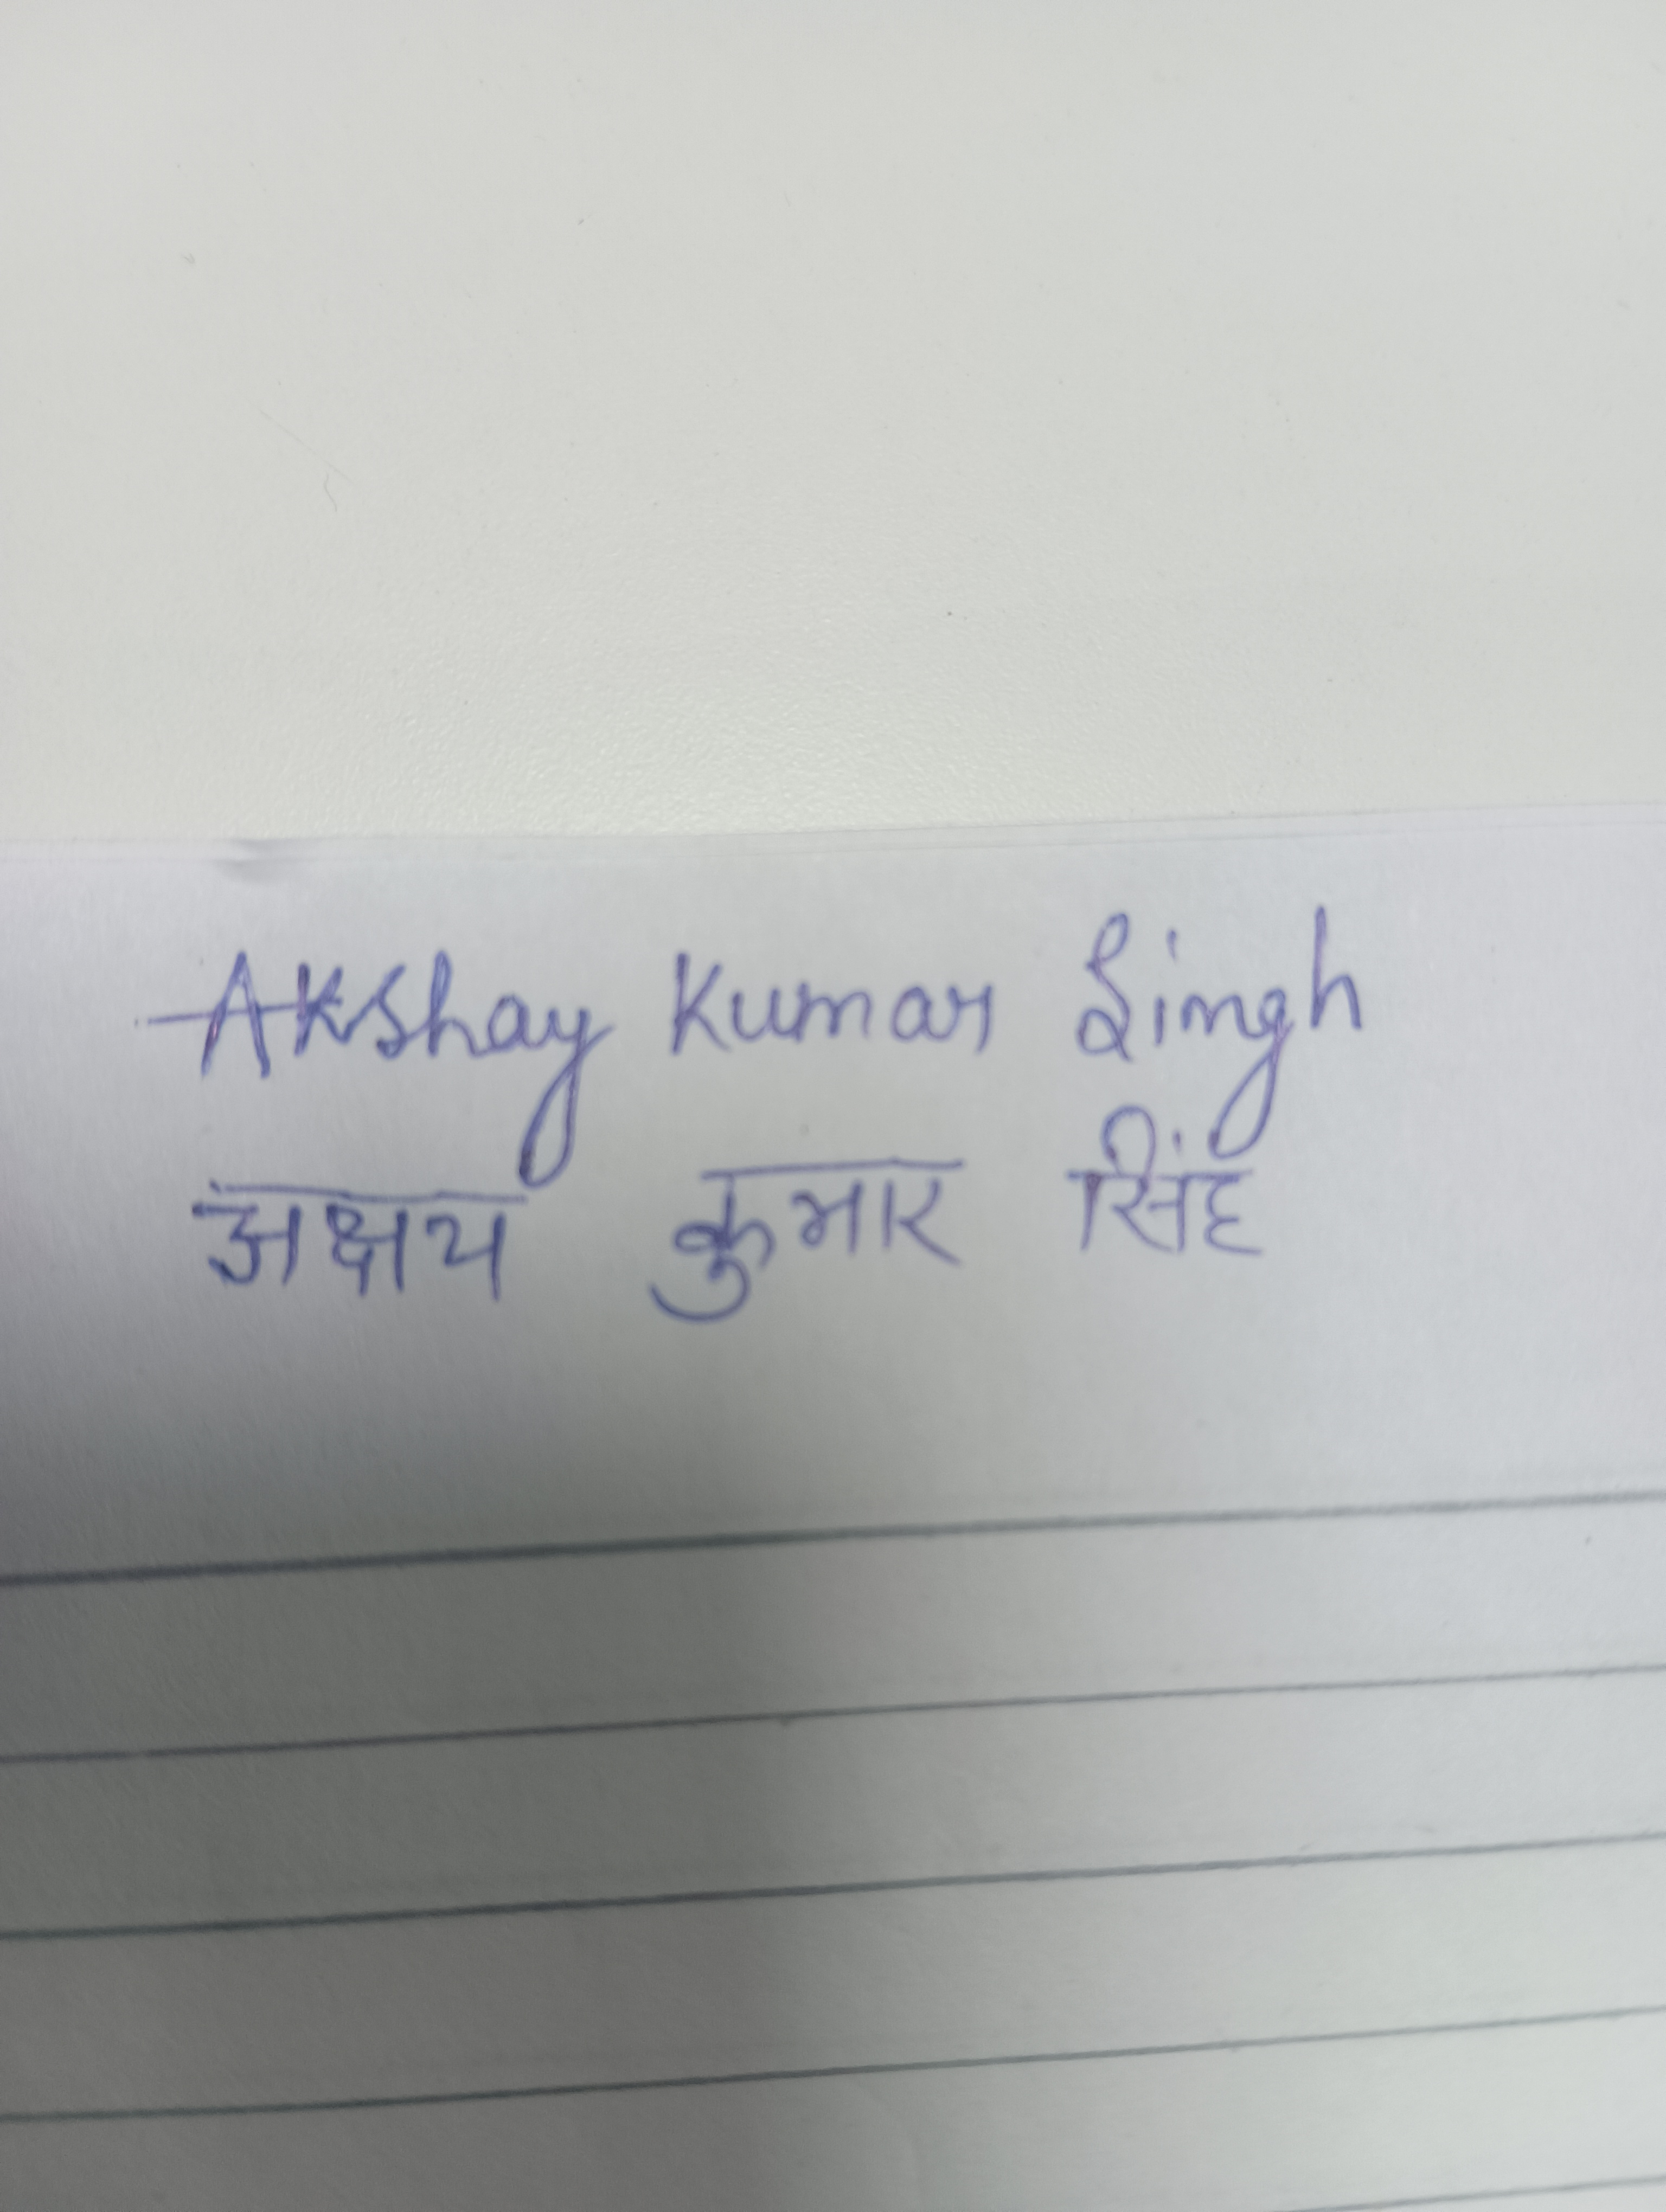 Akshay Kumar Singh
अक्षय कुमार सिंह